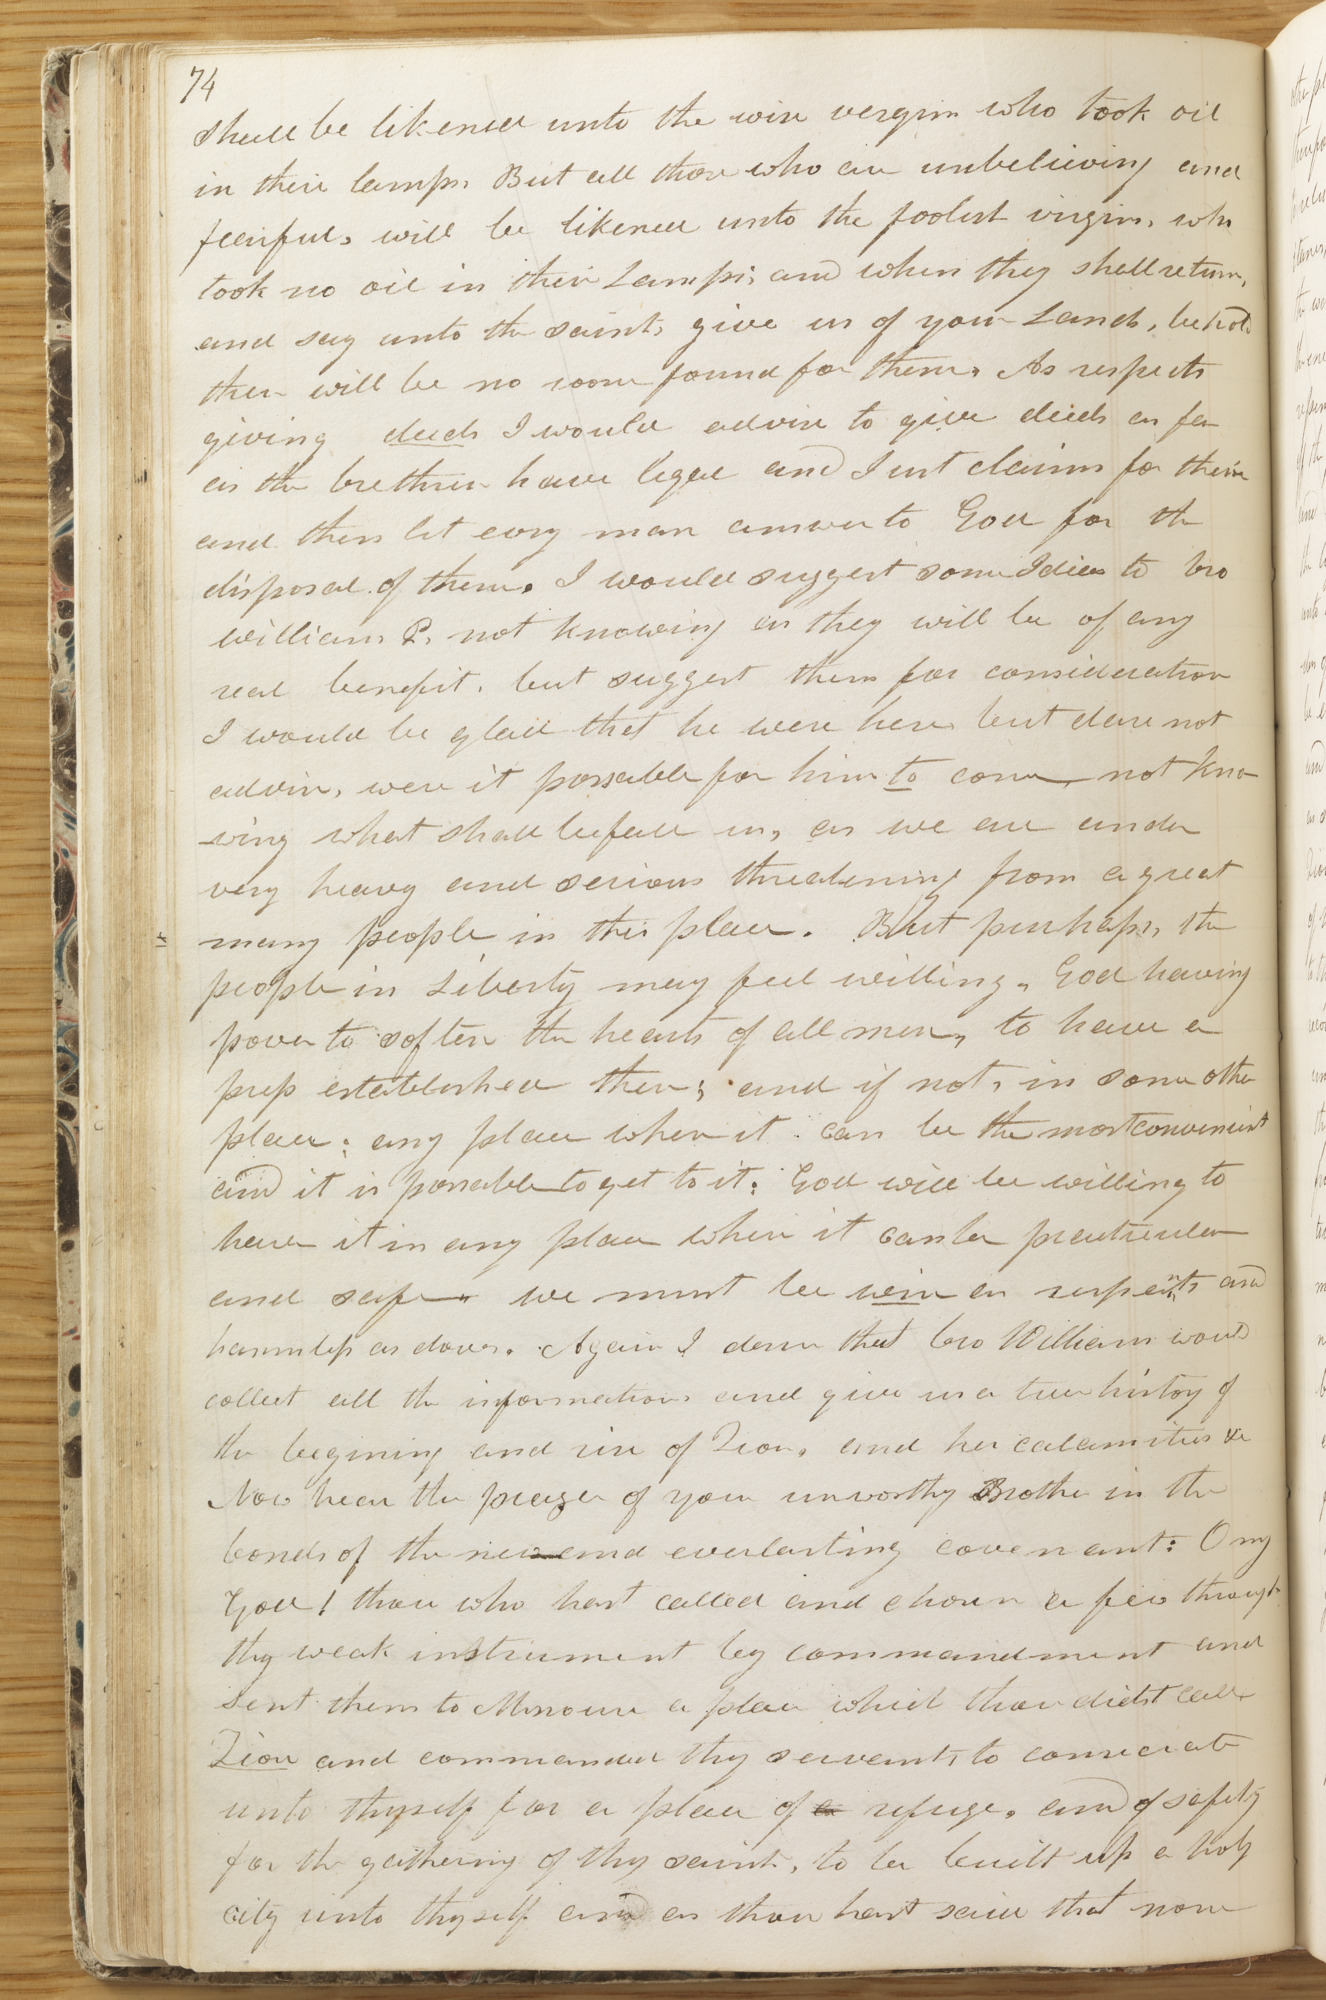 74
shall be likened unto the wise vergins who took oil
in their lamps. But all those who are unbelieving and
fearful, will be likened unto the foolish virgins, who
took no oil in their Lamps; and when they shall return,
and say unto the saints, give us of your Lands, behold
there will be no room found for them. As respects
giving deeds I would advise to give deeds as far
as the brethren have legal and Just claims for them
and then let evry man answer to God for the
disposal of them. I would suggest some Idias to bro
William P. not knowing as they will be of any
real benefit, but suggest them for consideration
I would be glad that he were here but dare not
advise, were it possable for him to come, not kno
wing what shall befall us, as we are under
very heavy and serious threatening from a great
many people in this place. But perhaps, the
people in Liberty may feel willing, God having
power to soften the hearts of all men, to have a
press established there; and if not, in some other
place; any place where it can be the most convenient
and it is possable to get to it; God will be willing to
have it in any place where it can be preutiular
and safe. we must be wise as serpents and
harmless as doves. Again I desire that bro William would
collect all the information, and give us a true history of
the begining and rise of Zion, and her calamities &c
Now hear the prayer of your unworthy Brother in the
bonds of the new and everlasting covenant: O my
God! thou who hast called and chosen a few through
thy weak instrument by commandment and
sent them to Missouri a place which thou didst call
Zion and commanded thy servants to consecrate
unto thyself for a place of a refuge, and of safety
for the gathering of thy saints, to be built up a holy
city unto thyself and as thou hast said that none